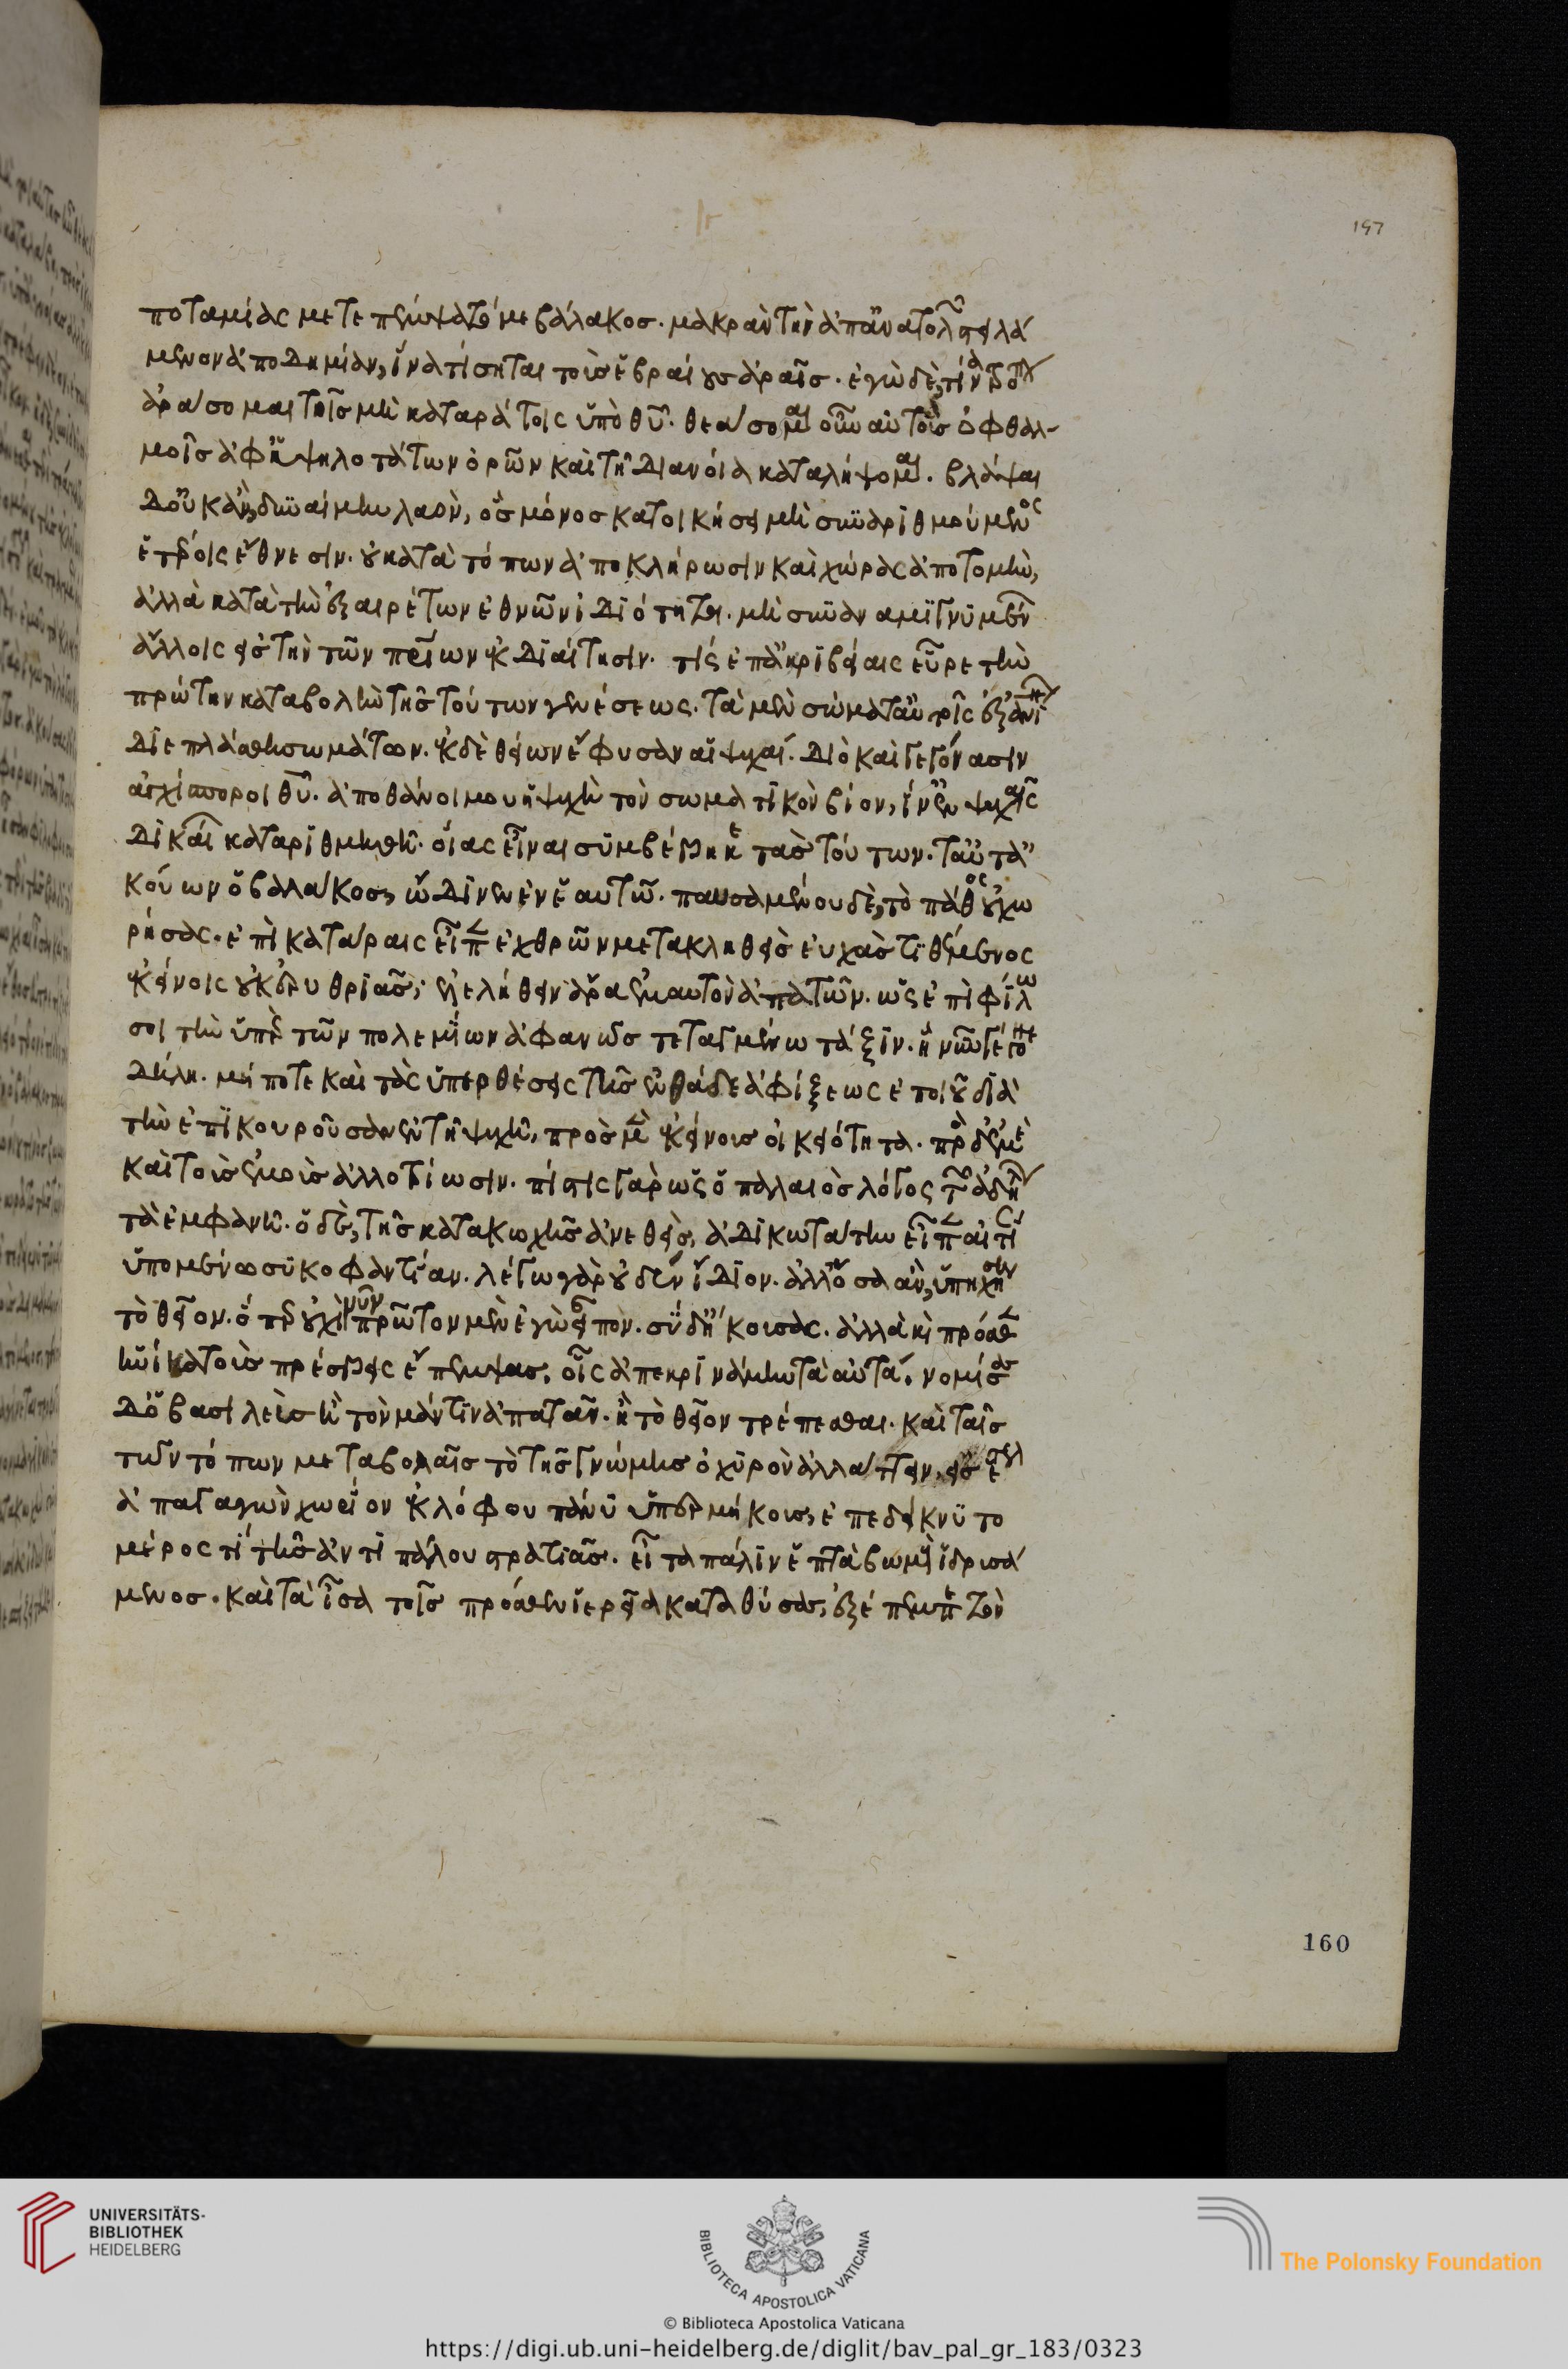 ποταμίας μετεπέμψατό με βάλακος. μακρὰν τὴν ἀπ' ἀνατολῶν στειλά
μενον ἀποδημίαν, ἵνα τίσηται τοὺς ἑβραίους ἀραῖς. ἐγὼ δὲ, τίνα τρόπον
ἀράσομαι τοῖς μὴ καταράτοις ὑπὸ θῦ. θεάσομαι οὖν αὐτοὺς ὀφθαλ-
μοῖς ἀφ' ὑψηλοτάτων ὀρῶν καὶ τῆ διανοία καταλήψομαι. βλάψαι
δ' οὐκ ἂν, δυναίμην λαὸν, ὃς μόνος κατοικήσει μὴ συναριθμούμενος
ἑτέροις ἔθνεσιν. οὐ κατὰ τόπων ἀποκλήρωσιν καὶ χώρας ἀποτομὴν,
ἀλλὰ κατὰ τὴν ἐξαιρέτων ἐθνῶν ἰδιότητα. μὴ συναναμιγνύμενον
ἄλλοις εἰς τὴν τῶν πατρίων ἐκδιαίτησιν. τίς ἐπ' ἀκριβείαις εὗρε τὴν
πρώτην καταβολὴν τῆς τούτων γενέσεως. τὰ μὲν σώματα αὐτοῖς ἐξ ἀνθρωπίνων
διεπλάσθη σωμάτων. ἐκ δὲ θείων ἔφυσαν αἱ ψυχαί. διὸ καὶ γεγόνασιν
ἀγχίσποροι θῦ. ἀποθάνοι μου ἡ ψυχὴ τὸν σωματικὸν βίον, ἵν' ἐν ψυχαῖς
δικαίων καταριθμηθῆ. οἵας εἶναι συμβέβηκε τὰς τούτων. ταῦτ' ἀ
κούων ὁ βάλακος, ὤδινεν ἐν ἑαυτῶ. παυσαμένου δὲ, τὸ πάθος οὐ χω
ρήσας. ἐπὶ κατάραις εἶπεν ἐχθρῶν μετακληθεὶς εὐχὰς τιθέμενος
ἐκείνοις οὐκ ἐρυθριᾶς; ἐλελήθειν ἄρα ἐμαυτὸν ἀπατῶν. ὡς ἐπὶ φίλω
σοι τὴν ὑπὲρ τῶν πολεμίων ἀφανῶς τεταγμένω τάξιν. ἣ νῦν γέγονε
δήλη. μήποτε καὶ τὰς ὑπερθέσεις τῆς ἐνθάδε ἀφίξεως ἐποιοῦ διὰ
τὴν ἐπικουροῦσαν ἐν τῆ ψυχῆ, πρὸς μὲν ἐκείνους οἰκειότητα. πρὸς δ' ἐμὲ
καὶ τοὺς ἐμοὺς ἀλλοτρίωσιν. πίστις γὰρ ὡς ὁ παλαιὸς λόγος τῶν ἀδήλων
τὰ ἐμφανῆ. ὁ δὲ, τῆς κατακωχῆς ἀνεθεὶς, ἀδικωτάτην εἶπεν αἰτίαν
ὑπομένω συκοφαντίαν. λέγω γὰρ οὐδὲν ἴδιον. ἀλλ' ὅσα ἂν, ὑπηχήσει
τὸ θεῖον. ὅπερ οὐχὶ νῦν πρῶτον μὲν ἐγὼ εἶπον. σὺ δ' ἤκουσας. ἀλλὰ καὶ πρόσθεν
ἡνίκα τοὺς πρέσβεις ἔπεμψας, οἷς ἀπεκρινάμην τὰ αὐτά. νομίσας
δ' ὁ βασιλεὺς ἢ τὸν μάντιν ἀπατᾶν. ἢ τὸ θεῖον τρέπεσθαι. καὶ ταῖς
τῶν τόπων μεταβολαῖς τὸ τῆς γνώμης ὀχυρὸν ἀλλάττειν, εἰς ἕτερον
ἀπαγαγὼν χωρίον ἐκ λόφου πάνυ ὑπερμήκους, ἐπεδείκνυτο
μέρος τι τῆς ἀντιπάλου στρατιᾶς. εἶτα πάλιν ἑπτὰ βωμοὺς ἱδρυσά
μενος. καὶ τὰ ἶσα τοῖς πρόσθεν ἱερεῖα καταθύσας, ἐξέπεμπε τὸν
197
160
UNIVERSITÄTS-
BIBLIOTHEK
HEIDELBERG
BIBLIOTECA APOSTOLICA VATICANA
The Polonsky Foundation
© Biblioteca Apostolica Vaticana
https://digi.ub.uni-heidelberg.de/diglit/bav_pal_gr_183/0323